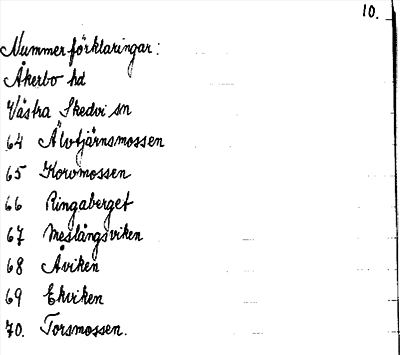 10.
Nummerförklaringar:
Åkerbo hd
Västra Skedvi sn
64 Älvtjärnsmossen
65 Korvmossen
66 Ringaberget
67 Meslångsviken
68 Åviken
69 Ekviken
70. Torsmossen.